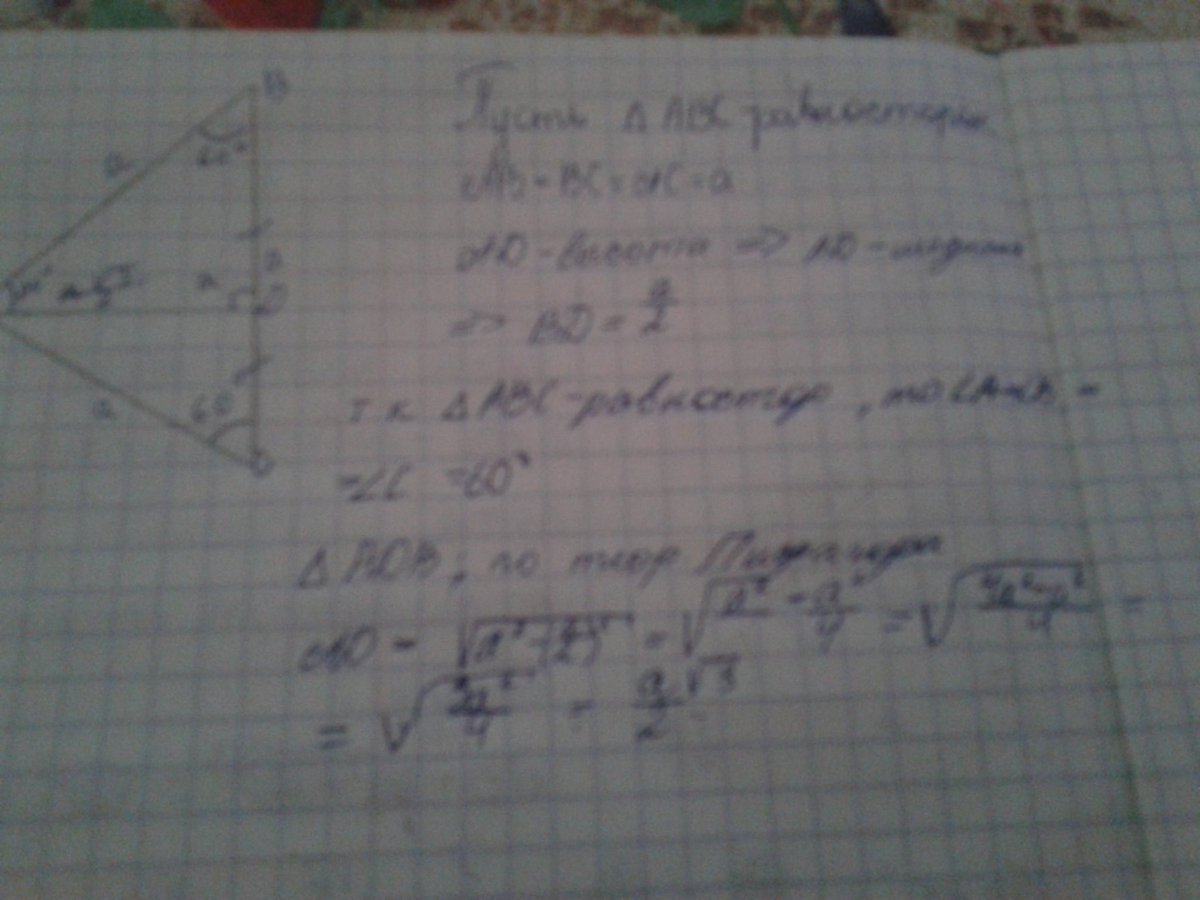 B
a
60°
a
D
a
60
Пусть △ABC равносторон
AB = BC = AC = a
AD - высота => AD - медиана
=> BD = a/2
т к △ABC - равностор, то ∠A=∠B =
= ∠C = 60°
△ADB; по теор Пифагора
AD = √(a² - (a/2)²) = √(a² - a²/4) = √((4a² - a²)/4) =
= √(3a²/4) = a/2 √3